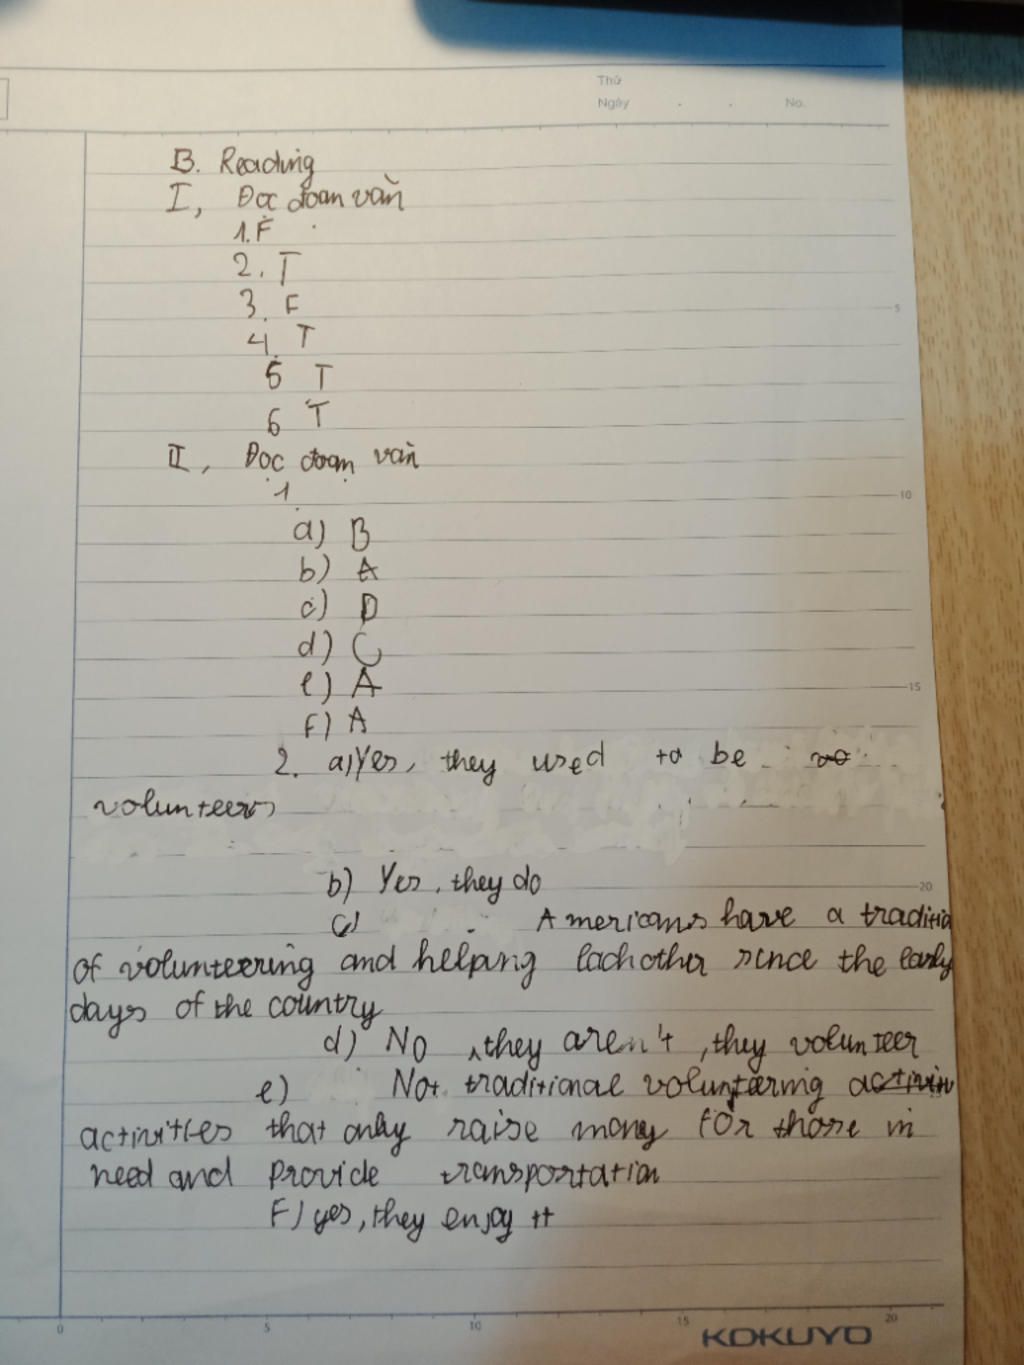 Thứ
Ngày . . No.
B. Reading
I, Đọc đoạn văn
1. F
2. T
3. F
4. T
5 T
6 T
II, Đọc đoạn văn
1.
a) B
b) A
c) D
d) C
e) A
F) A
2. a) Yes, they used to be
volunteers
b) Yes, they do
c) Americans have a traditio
of volunteering and helping eachother since the early
days of the country
d) No, they aren't, they volunteer
e) Not traditional volunteering
activities that only raise money for those in
need and provide transportation
F) yes, they enjoy it
5
10
15
20
0 5 10 15 20
KOKUYO